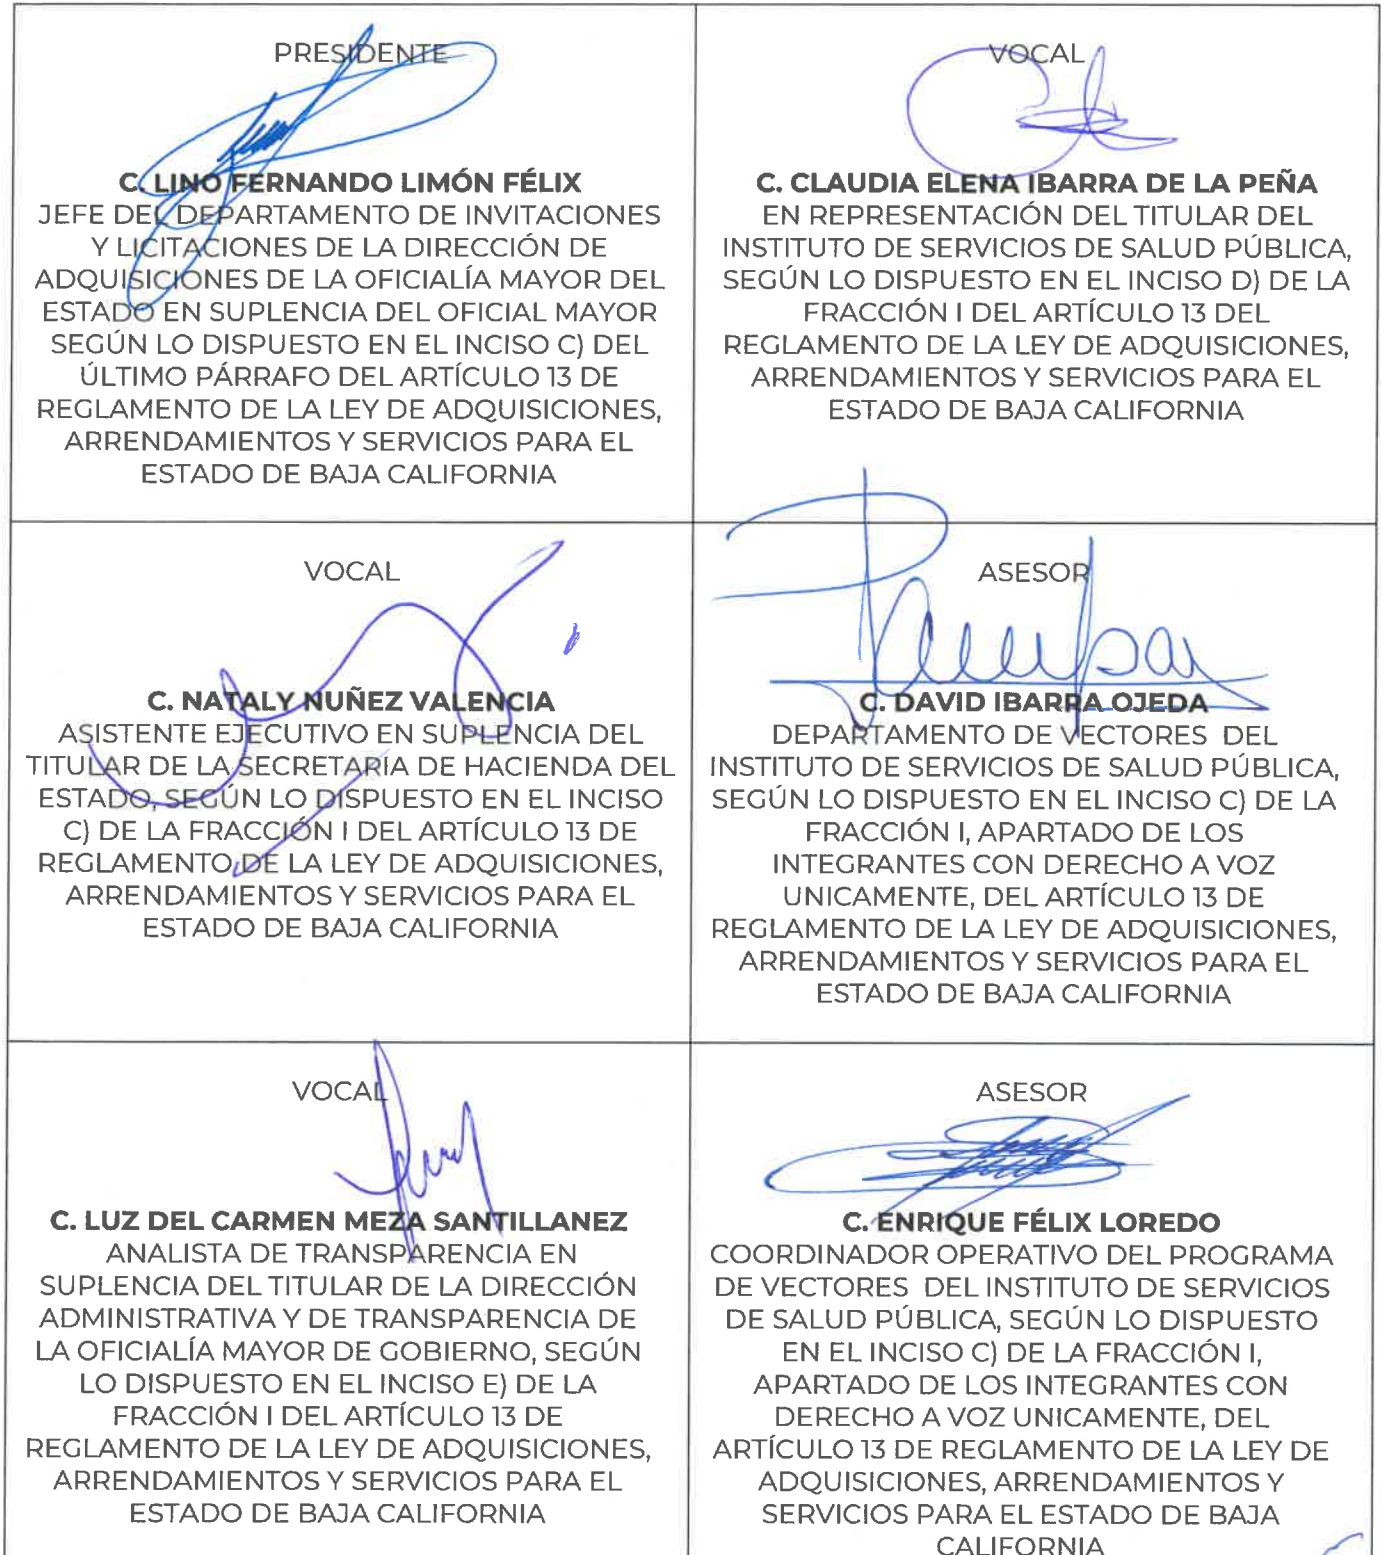 PRESIDENTE
C. LINO FERNANDO LIMÓN FÉLIX
JEFE DEL DEPARTAMENTO DE INVITACIONES
Y LICITACIONES DE LA DIRECCIÓN DE
ADQUISICIONES DE LA OFICIALÍA MAYOR DEL
ESTADO EN SUPLENCIA DEL OFICIAL MAYOR
SEGÚN LO DISPUESTO EN EL INCISO C) DEL
ÚLTIMO PÁRRAFO DEL ARTÍCULO 13 DE
REGLAMENTO DE LA LEY DE ADQUISICIONES,
ARRENDAMIENTOS Y SERVICIOS PARA EL
ESTADO DE BAJA CALIFORNIA
VOCAL
C. CLAUDIA ELENA IBARRA DE LA PEÑA
EN REPRESENTACIÓN DEL TITULAR DEL
INSTITUTO DE SERVICIOS DE SALUD PÚBLICA,
SEGÚN LO DISPUESTO EN EL INCISO D) DE LA
FRACCIÓN I DEL ARTÍCULO 13 DEL
REGLAMENTO DE LA LEY DE ADQUISICIONES,
ARRENDAMIENTOS Y SERVICIOS PARA EL
ESTADO DE BAJA CALIFORNIA
VOCAL
C. NATALY NUÑEZ VALENCIA
ASISTENTE EJECUTIVO EN SUPLENCIA DEL
TITULAR DE LA SECRETARÍA DE HACIENDA DEL
ESTADO, SEGÚN LO DISPUESTO EN EL INCISO
C) DE LA FRACCIÓN I DEL ARTÍCULO 13 DE
REGLAMENTO DE LA LEY DE ADQUISICIONES,
ARRENDAMIENTOS Y SERVICIOS PARA EL
ESTADO DE BAJA CALIFORNIA
ASESOR
C. DAVID IBARRA OJEDA
DEPARTAMENTO DE VECTORES DEL
INSTITUTO DE SERVICIOS DE SALUD PÚBLICA,
SEGÚN LO DISPUESTO EN EL INCISO C) DE LA
FRACCIÓN I, APARTADO DE LOS
INTEGRANTES CON DERECHO A VOZ
UNICAMENTE, DEL ARTÍCULO 13 DE
REGLAMENTO DE LA LEY DE ADQUISICIONES,
ARRENDAMIENTOS Y SERVICIOS PARA EL
ESTADO DE BAJA CALIFORNIA
VOCAL
C. LUZ DEL CARMEN MEZA SANTILLANEZ
ANALISTA DE TRANSPARENCIA EN
SUPLENCIA DEL TITULAR DE LA DIRECCIÓN
ADMINISTRATIVA Y DE TRANSPARENCIA DE
LA OFICIALÍA MAYOR DE GOBIERNO, SEGÚN
LO DISPUESTO EN EL INCISO E) DE LA
FRACCIÓN I DEL ARTÍCULO 13 DE
REGLAMENTO DE LA LEY DE ADQUISICIONES,
ARRENDAMIENTOS Y SERVICIOS PARA EL
ESTADO DE BAJA CALIFORNIA
ASESOR
C. ENRIQUE FÉLIX LOREDO
COORDINADOR OPERATIVO DEL PROGRAMA
DE VECTORES DEL INSTITUTO DE SERVICIOS
DE SALUD PÚBLICA, SEGÚN LO DISPUESTO
EN EL INCISO C) DE LA FRACCIÓN I,
APARTADO DE LOS INTEGRANTES CON
DERECHO A VOZ UNICAMENTE, DEL
ARTÍCULO 13 DE REGLAMENTO DE LA LEY DE
ADQUISICIONES, ARRENDAMIENTOS Y
SERVICIOS PARA EL ESTADO DE BAJA
CALIFORNIA